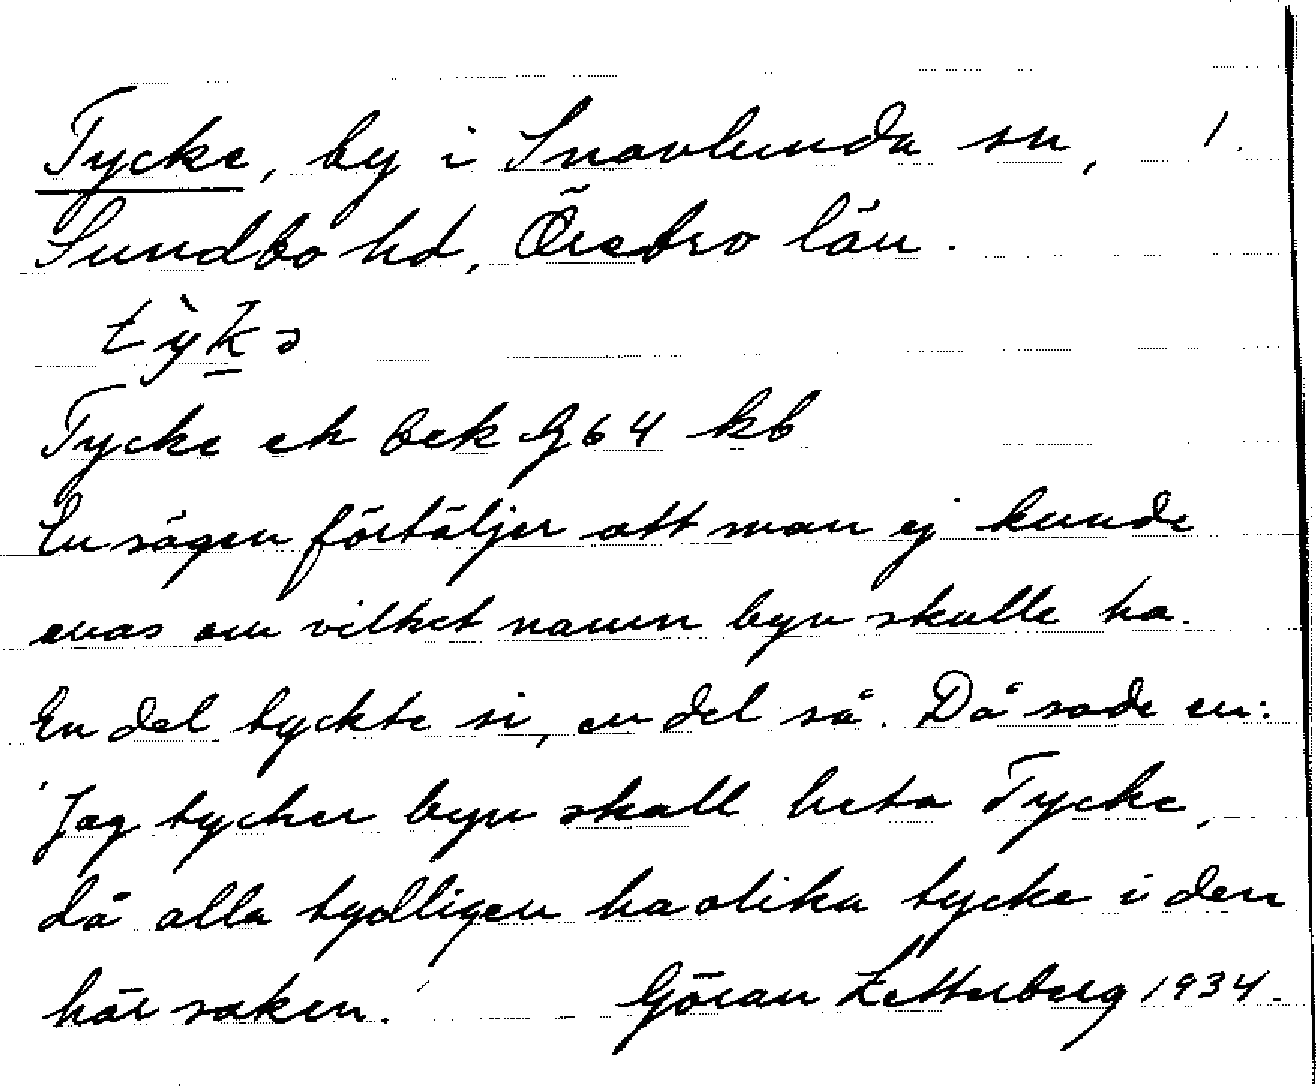 Tycke, by i Snavlunda sn, 1.
Sundbo hd, Örebro län.
tỳkə
Tycke ek bek G64 kb
En sägen förtäljer att man ej kunde
enas om vilket namn byn skulle ha.
En del tyckte si, en del så. Då sade en:
'Jag tycker byn skall heta Tycke,
då alla tydligen ha olika tycke i den
här saken.' Göran Zetterberg 1934.